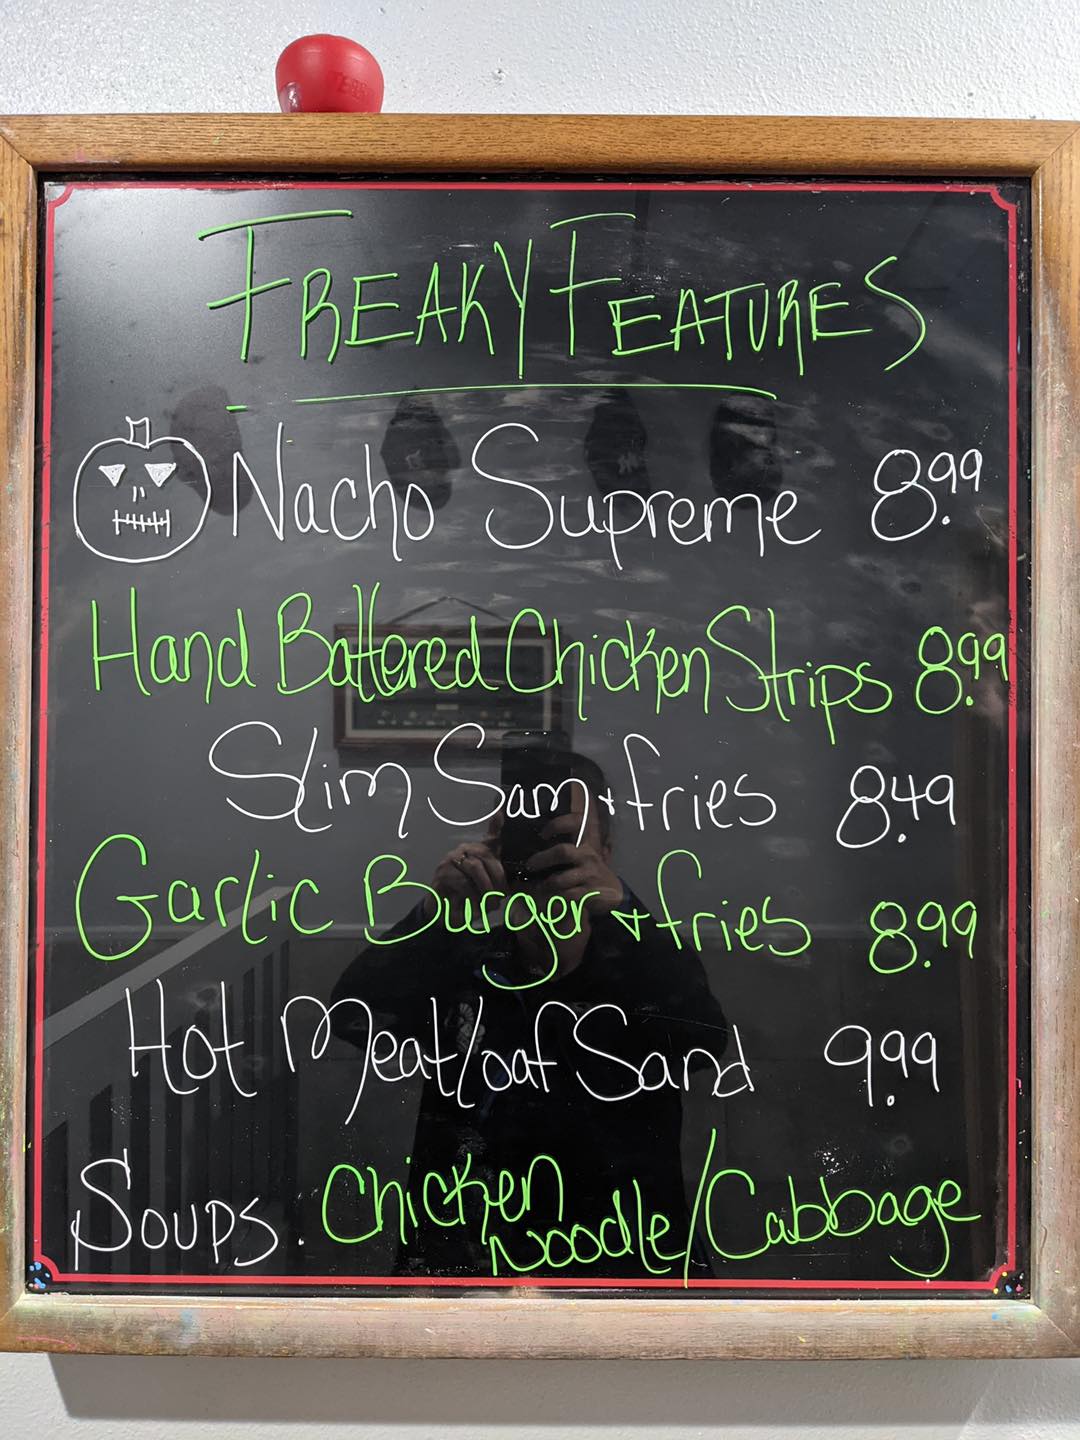 FREAKY FEATURES
Nacho Supreme 8.99
Hand Battered Chicken Strips 8.99
Slim Sam + fries 8.49
Garlic Burger + fries 8.99
Hot Meatloaf Sand 9.99
Soups. Chicken Noodle/Cabbage